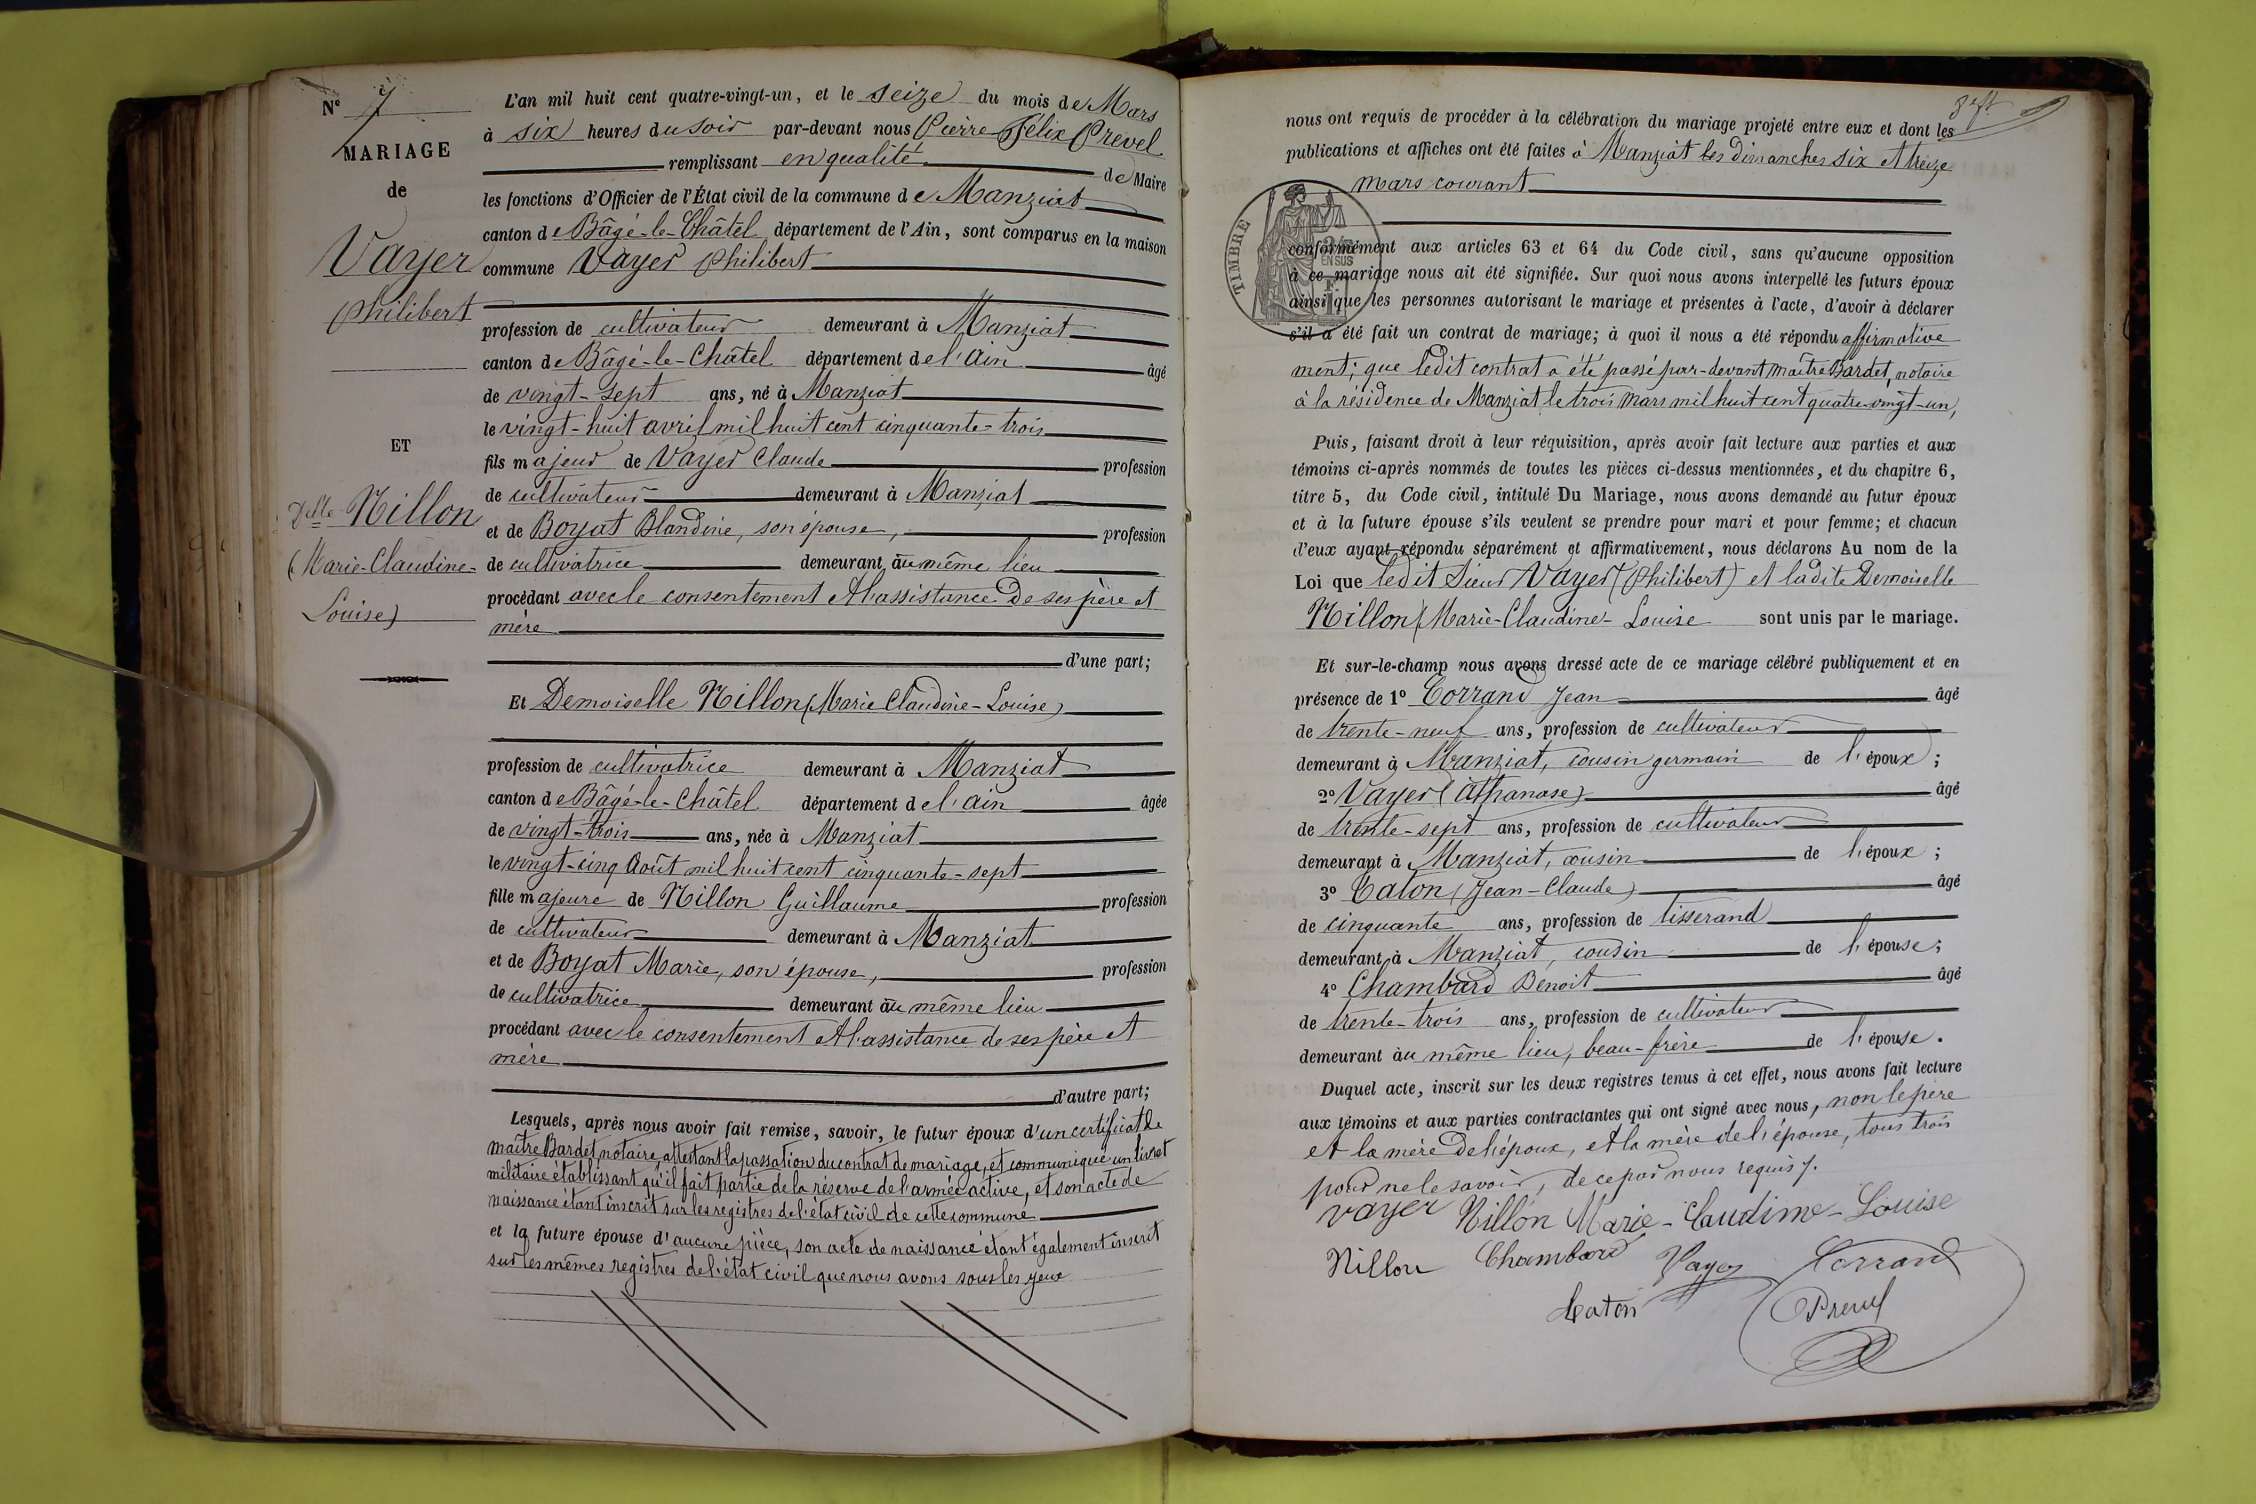 N° 7
MARIAGE
de
Vayer
Philibert
ET
Delle Nillon
(Marie-Claudine-
Louise)
L'an mil huit cent quatre-vingt-un, et le seize du mois de Mars
à six heures du soir par-devant nous Pierre Félix Prevel
remplissant en qualité de Maire
les fonctions d'Officier de l'État civil de la commune de Manziat
canton de Bâgé-le-Châtel département de l'Ain, sont comparus en la maison
commune Vayer Philibert
profession de cultivateur demeurant à Manziat
canton de Bâgé-le-Châtel département de l'Ain âgé
de vingt-sept ans, né à Manziat
le vingt-huit avril mil huit cent cinquante-trois
fils majeur de Vayer Claude profession
de cultivateur demeurant à Manziat
et de Boyat Blandine, son épouse, profession
de cultivatrice demeurant au même lieu
procédant avec le consentement et l'assistance de ses père et
mère
d'une part;
Et Demoiselle Nillon (Marie Claudine-Louise)
profession de cultivatrice demeurant à Manziat
canton de Bâgé-le-Châtel département de l'Ain âgée
de vingt-trois ans, née à Manziat
le vingt-cinq Août mil huit cent cinquante-sept
fille majeure de Nillon Guillaume profession
de cultivateur demeurant à Manziat
et de Boyat Marie, son épouse, profession
de cultivatrice demeurant au même lieu
procédant avec le consentement et l'assistance de ses père et
mère
d'autre part;
Lesquels, après nous avoir fait remise, savoir, le futur époux d'un certificat de
maître Bardet, notaire, attestant la passation du contrat de mariage, et communiqué un livret
militaire établissant qu'il fait partie de la réserve de l'armée active, et son acte de
naissance étant inscrit sur les registres de l'état civil de cette commune
et la future épouse d'aucune pièce, son acte de naissance étant également inscrit
sur les mêmes registres de l'état civil que nous avons sous les yeux
nous ont requis de procéder à la célébration du mariage projeté entre eux et dont les
publications et affiches ont été faites à Manziat les dimanches six et treize
mars courant
TIMBRE
EN SUS
conformément aux articles 63 et 64 du Code civil, sans qu'aucune opposition
à ce mariage nous ait été signifiée. Sur quoi nous avons interpellé les futurs époux
ainsi que les personnes autorisant le mariage et présentes à l'acte, d'avoir à déclarer
s'il a été fait un contrat de mariage; à quoi il nous a été répondu affirmative
ment; que ledit contrat a été passé par-devant maître Bardet, notaire
à la résidence de Manziat le trois Mars mil huit cent quatre-vingt-un,
Puis, faisant droit à leur réquisition, après avoir fait lecture aux parties et aux
témoins ci-après nommés de toutes les pièces ci-dessus mentionnées, et du chapitre 6,
titre 5, du Code civil, intitulé Du Mariage, nous avons demandé au futur époux
et à la future épouse s'ils veulent se prendre pour mari et pour femme; et chacun
d'eux ayant répondu séparément et affirmativement, nous déclarons Au nom de la
Loi que ledit Sieur Vayer (Philibert) et ladite Demoiselle
Nillon (Marie-Claudine-Louise sont unis par le mariage.
Et sur-le-champ nous avons dressé acte de ce mariage célébré publiquement et en
présence de 1° Corrand Jean âgé
de trente-neuf ans, profession de cultivateur
demeurant à Manziat, cousin germain de l'époux;
2° Vayer (Athanase) âgé
de trente-sept ans, profession de cultivateur
demeurant à Manziat, cousin de l'époux;
3° Caton (Jean-Claude) âgé
de cinquante ans, profession de tisserand
demeurant à Manziat, cousin de l'épouse;
4° Chambard Benoit âgé
de trente-trois ans, profession de cultivateur
demeurant au même lieu, beau-frère de l'épouse.
Duquel acte, inscrit sur les deux registres tenus à cet effet, nous avons fait lecture
aux témoins et aux parties contractantes qui ont signé avec nous, non le père
et la mère de l'époux, et la mère de l'épouse, tous trois
pour ne le savoir, de ce par nous requis.
vayer Nillon Marie-Claudine-Louise
Nillon Chambard Vayer Corrand
Caton Prevel